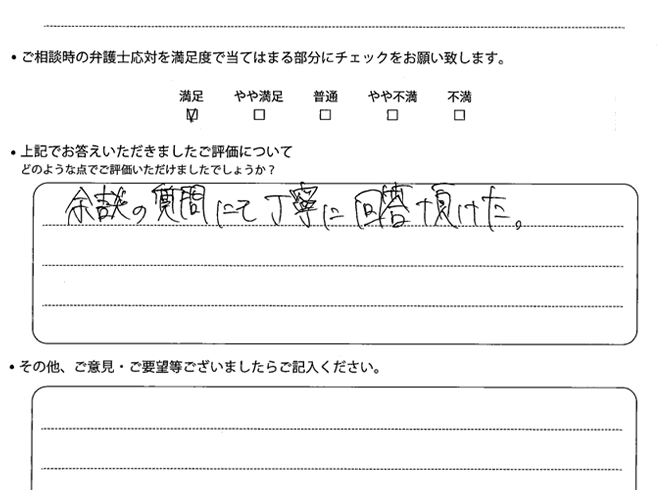 • ご相談時の弁護士応対を満足度で当てはまる部分にチェックをお願い致します。
満足 やや満足 普通 やや不満 不満
☑ □ □ □ □
• 上記でお答えいただきましたご評価について
どのような点でご評価いただけましたでしょうか？
余談の質問にて丁寧に回答頂けた。
• その他、ご意見・ご要望等ございましたらご記入ください。